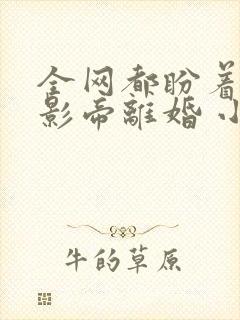 全网都盼着
影帝離婚小
牛的草原